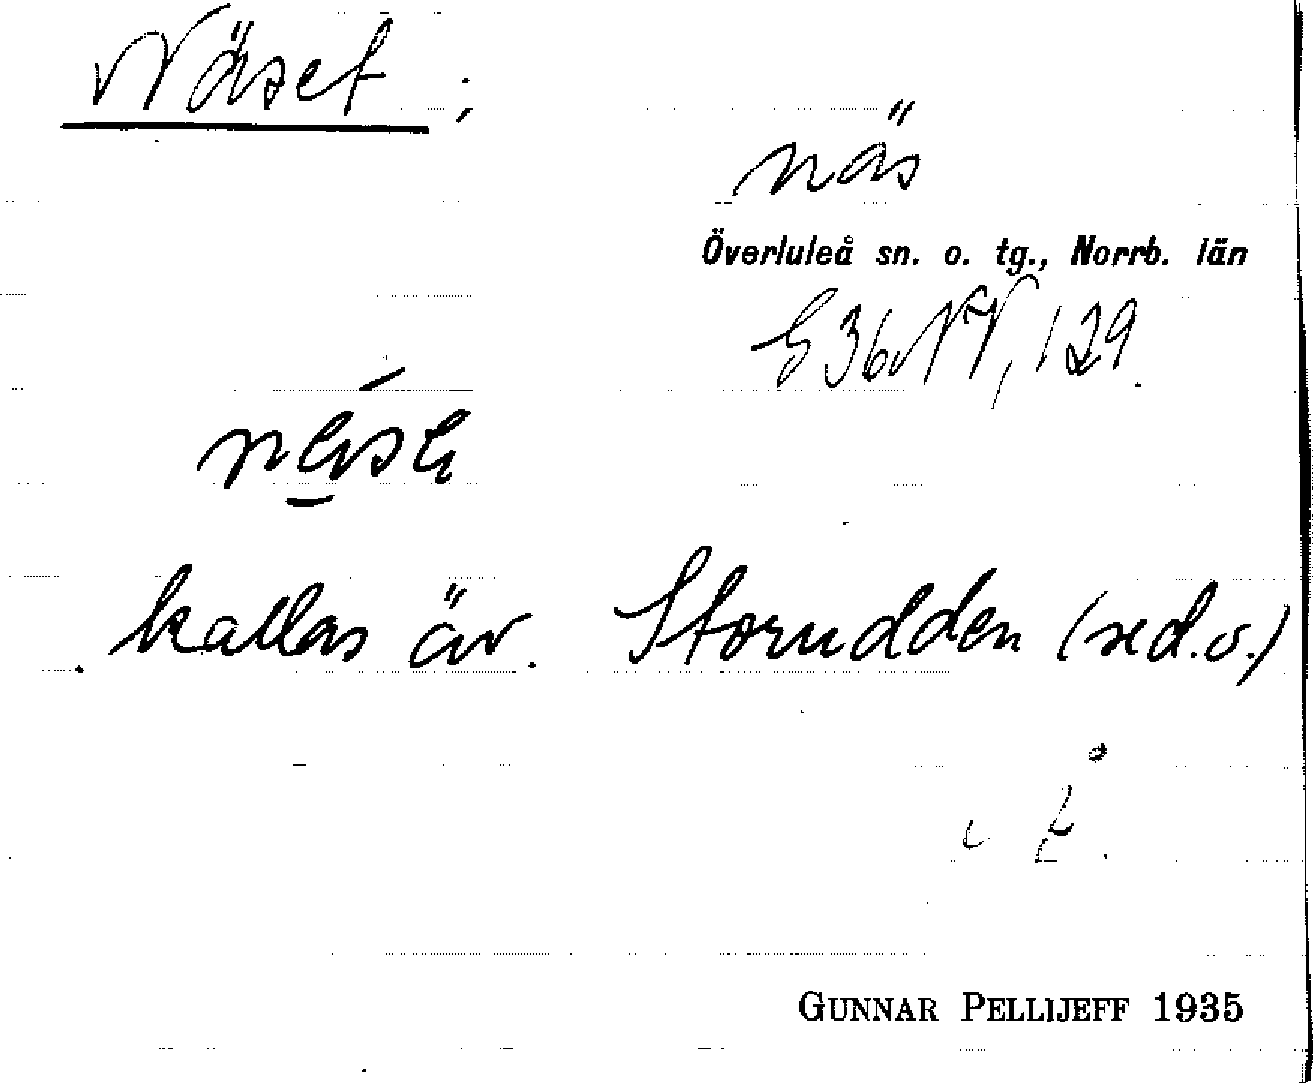 Näset;
näs
Överluleå sn. o. tg., Norrb. län
E 36 NV, 129.
kallas äv. Storudden (se d.o.)
GUNNAR PELLIJEFF 1935